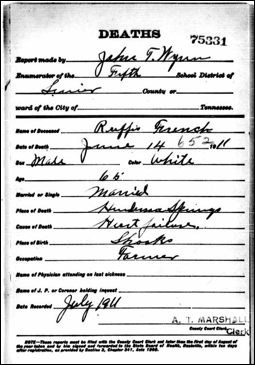 DEATHS
75331
Report made by John T. Wynn
Enumerator of the Fifth School District of
Sevier County or
ward of the City of Tennessee.
Name of Deceased Ruffis French
Date of Death June 14 652 1911
Sex Male Color White
Age 65
Married or Single Married
Place of Death Henderson Springs
Cause of Death Heart failure
Place of Birth
Occupation Farmer
Name of Physician attending on last sickness
Name of J. P. or Coroner holding inquest
Date Recorded July 1911
A. T. MARSHALL
County Court Clerk
Clerk
NOTE—These reports must be filed with the County Court Clerk not later than the first day of August of
the year taken and by him signed and forwarded to the State Board of Health, Nashville, within ten days
after registration, as provided by Section 3, Chapter